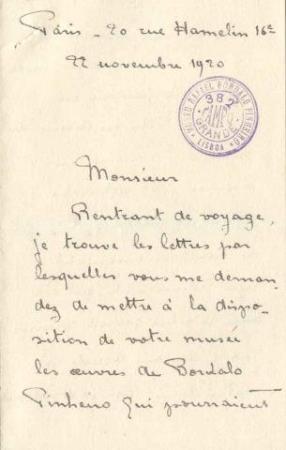 Paris - 20 rue Hamelin 16e
22 novembre 1920
MUSEU RAFAEL BORDALO PINHEIRO
382
CAMPO
GRANDE
LISBOA
Monsieur
Rentrant de voyage,
je trouve les lettres par
lesquelles vous me deman-
dez de mettre à la dispo-
sition de votre musée
les œuvres de Bordalo
Pinheiro qui pourraient